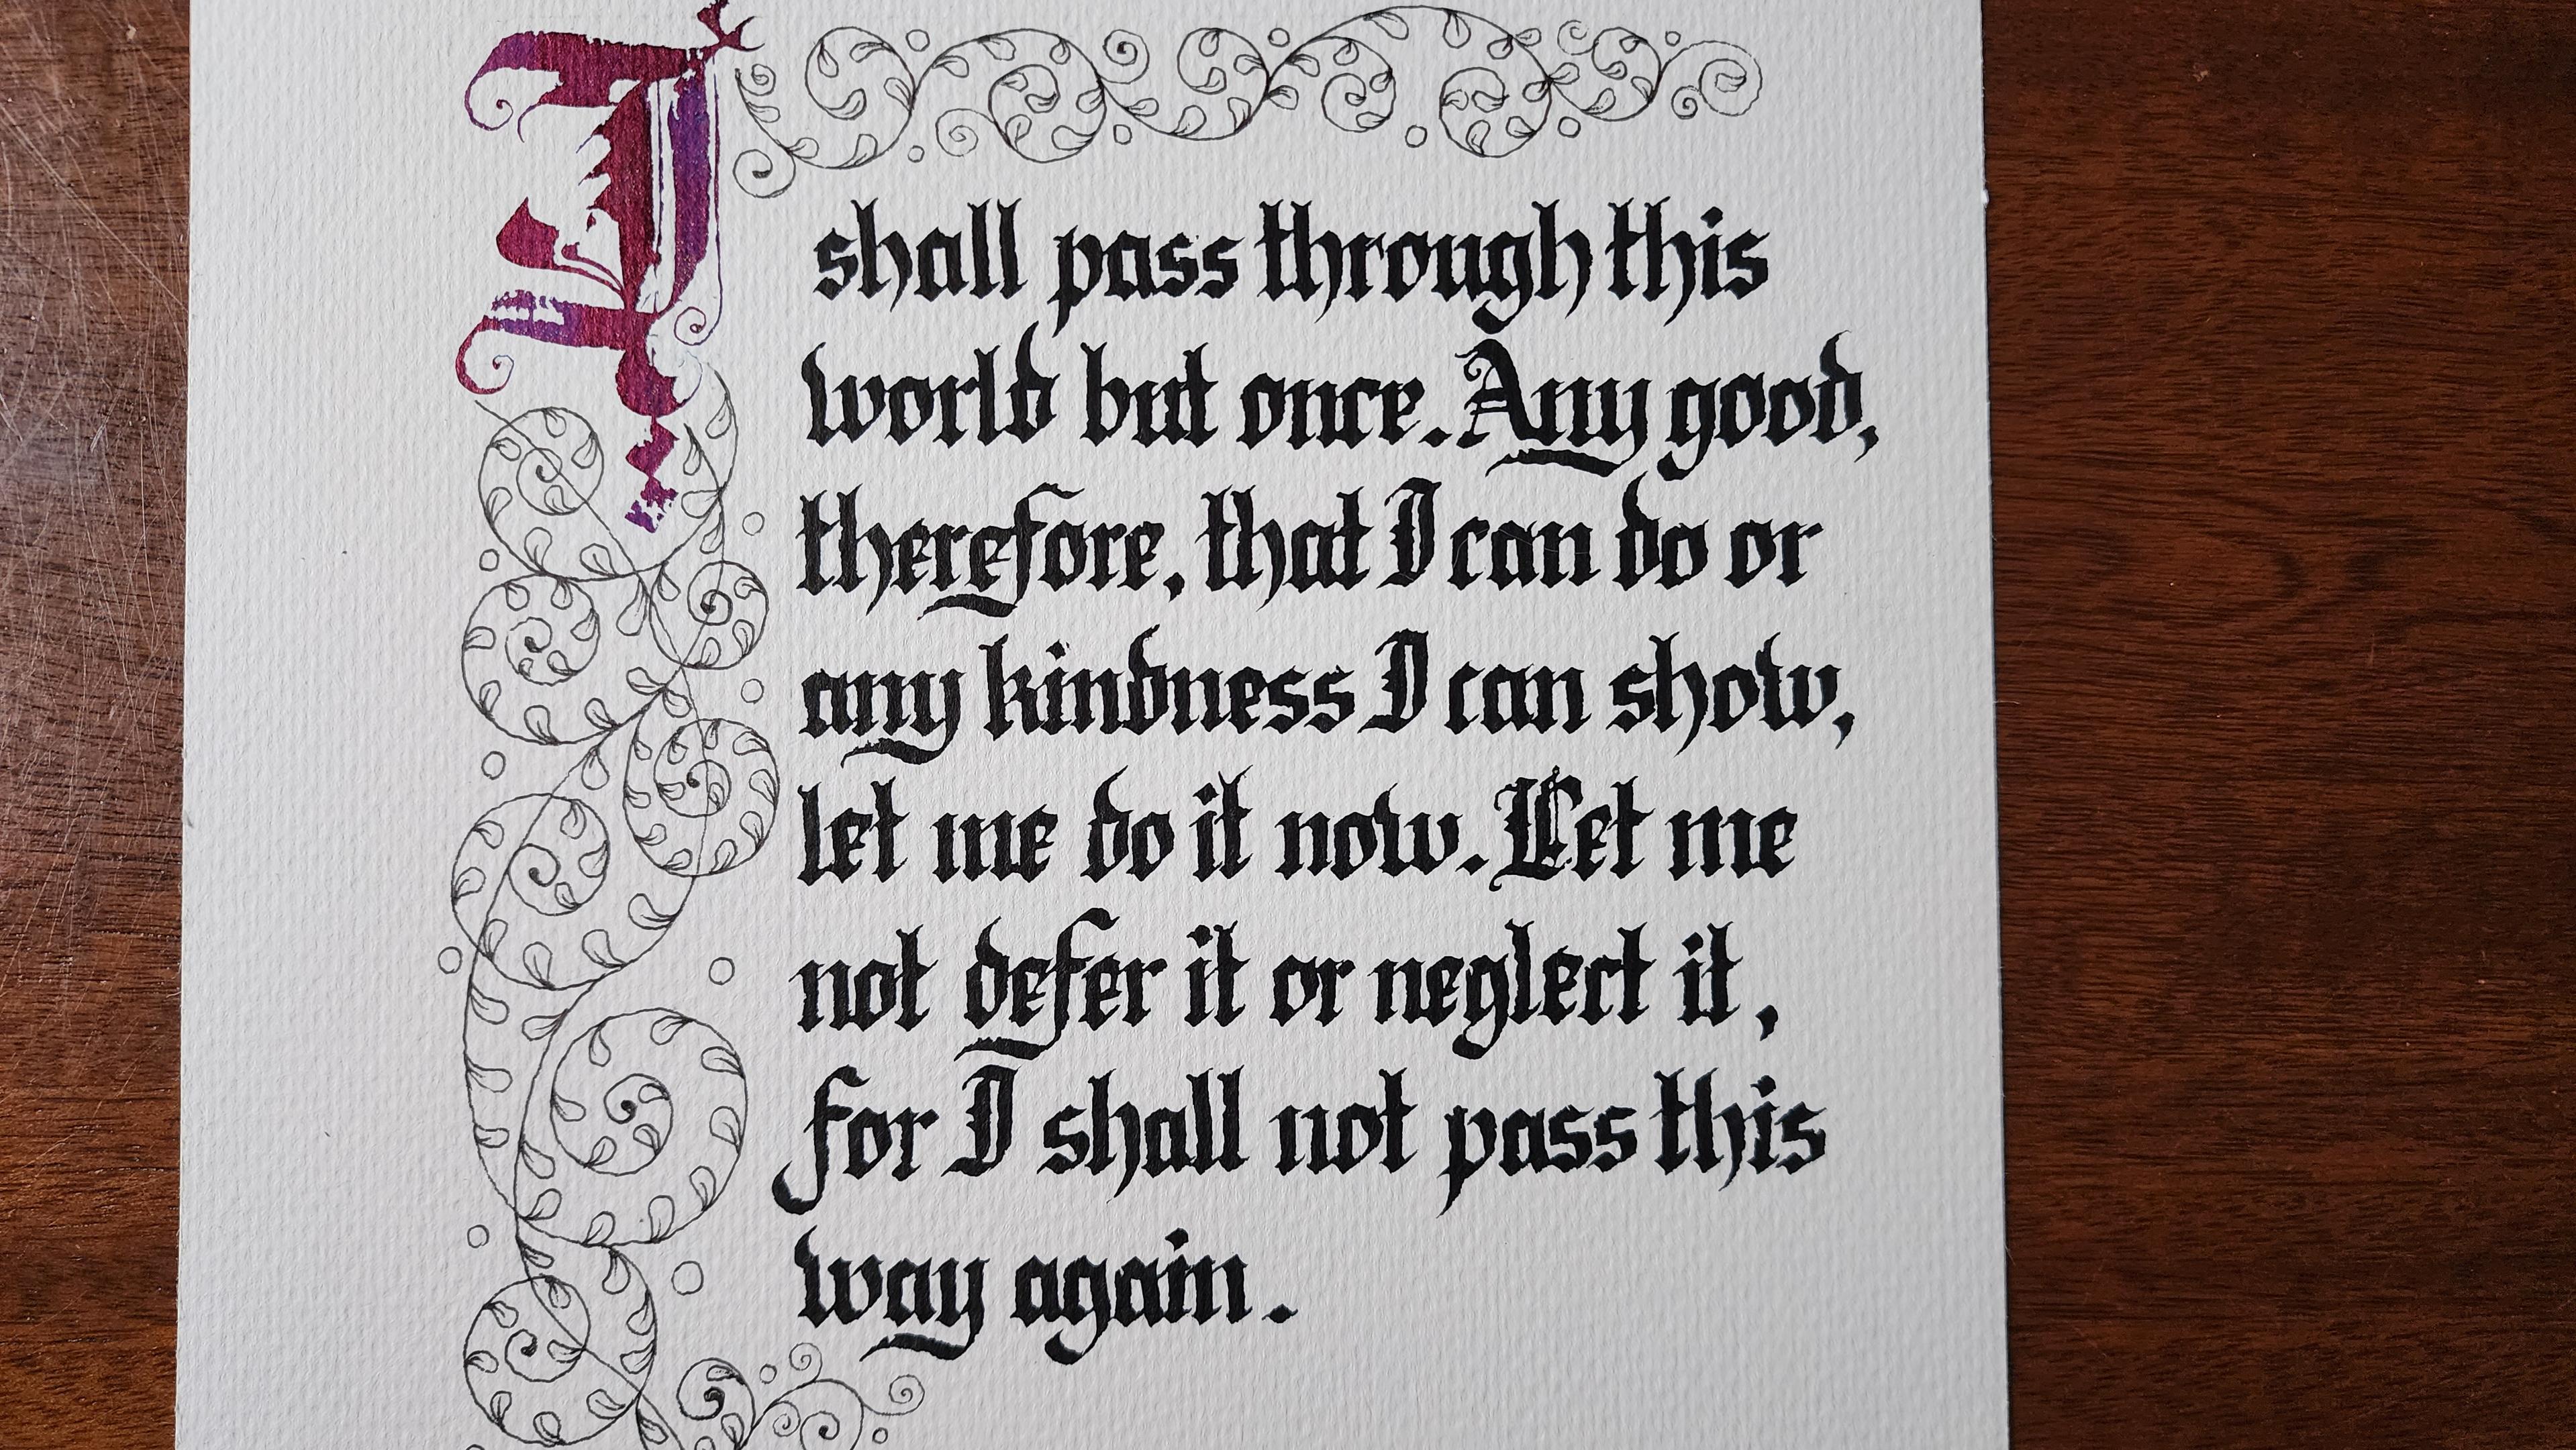 I shall pass through this
world but once. Any good,
therefore, that I can do or
any kindness I can show,
let me do it now. Let me
not defer it or neglect it,
for I shall not pass this
way again.